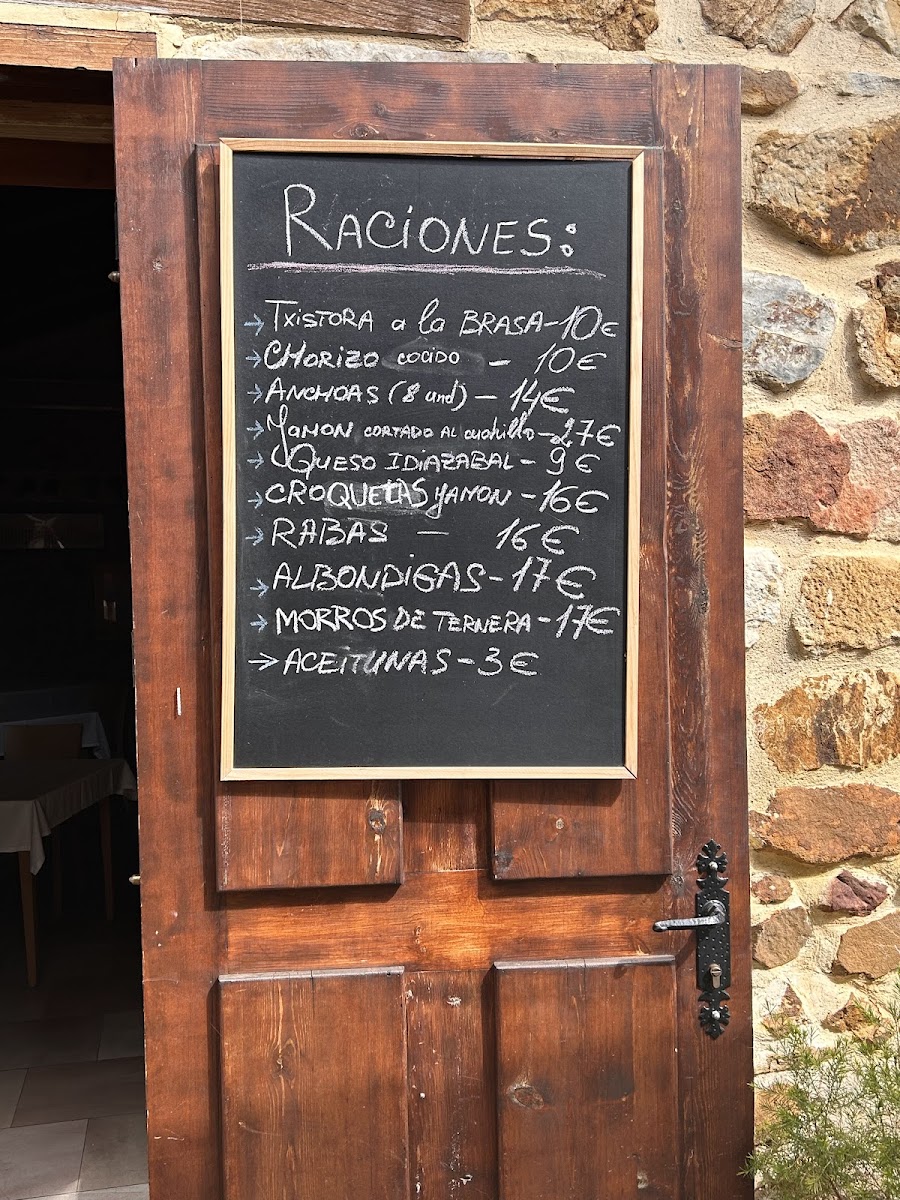 RACIONES:
→ TXISTORA a la BRASA - 10€
→ CHORIZO COCIDO - 10€
→ ANCHOAS (8 und) - 14€
→ JAMON CORTADO AL cuchillo - 27€
→ QUESO IDIAZABAL - 9€
→ CROQUETAS JAMON - 16€
→ RABAS - 16€
→ ALBONDIGAS - 17€
→ MORROS DE TERNERA - 17€
→ ACEITUNAS - 3€